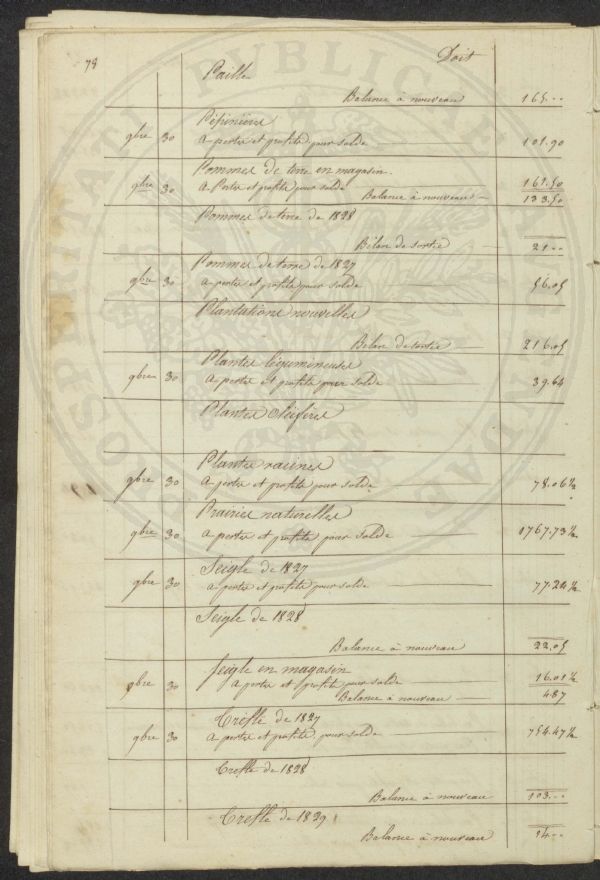 78 Doit
Paille
Balance à nouveau 165 . ..
Pépinières
9bre 30 a pertes et profits pour solde 101 . 90
Pommes de terre en magasin .
9bre 30 a Pertes et profits pour solde 161 . 50
Balance à nouveau 133 . 50
Pommes de terre de 1828
Bilan de sortie 21 . ..
Pommes de terre de 1827
9bre 30 a pertes et profits pour solde 56 . 05
Plantations nouvelles
Bilan de sortie 216 . 05
Plantes légumineuses
9bre 30 a pertes et profits pour solde 39 . 64
Plantes oléifères
Plantes racines
9bre 30 a pertes et profits pour solde 78 . 06 ½
Prairies naturelles
9bre 30 a pertes et profits pour solde 1767 . 73 ½
Seigle de 1827
9bre 30 a pertes et profits pour solde 77 . 22 ½
Seigle de 1828
Balance à nouveau 22 . 05
Seigle en magasin
9bre 30 a pertes et profits pour solde 16 . 01 ½
Balance à nouveau 4 . 87
Trefle de 1827
9bre 30 a pertes et profits pour solde 754 . 47 ½
Trefle de 1828
Balance à nouveau 103 . ..
Trefle de 1829
Balance à nouveau 14 . ..